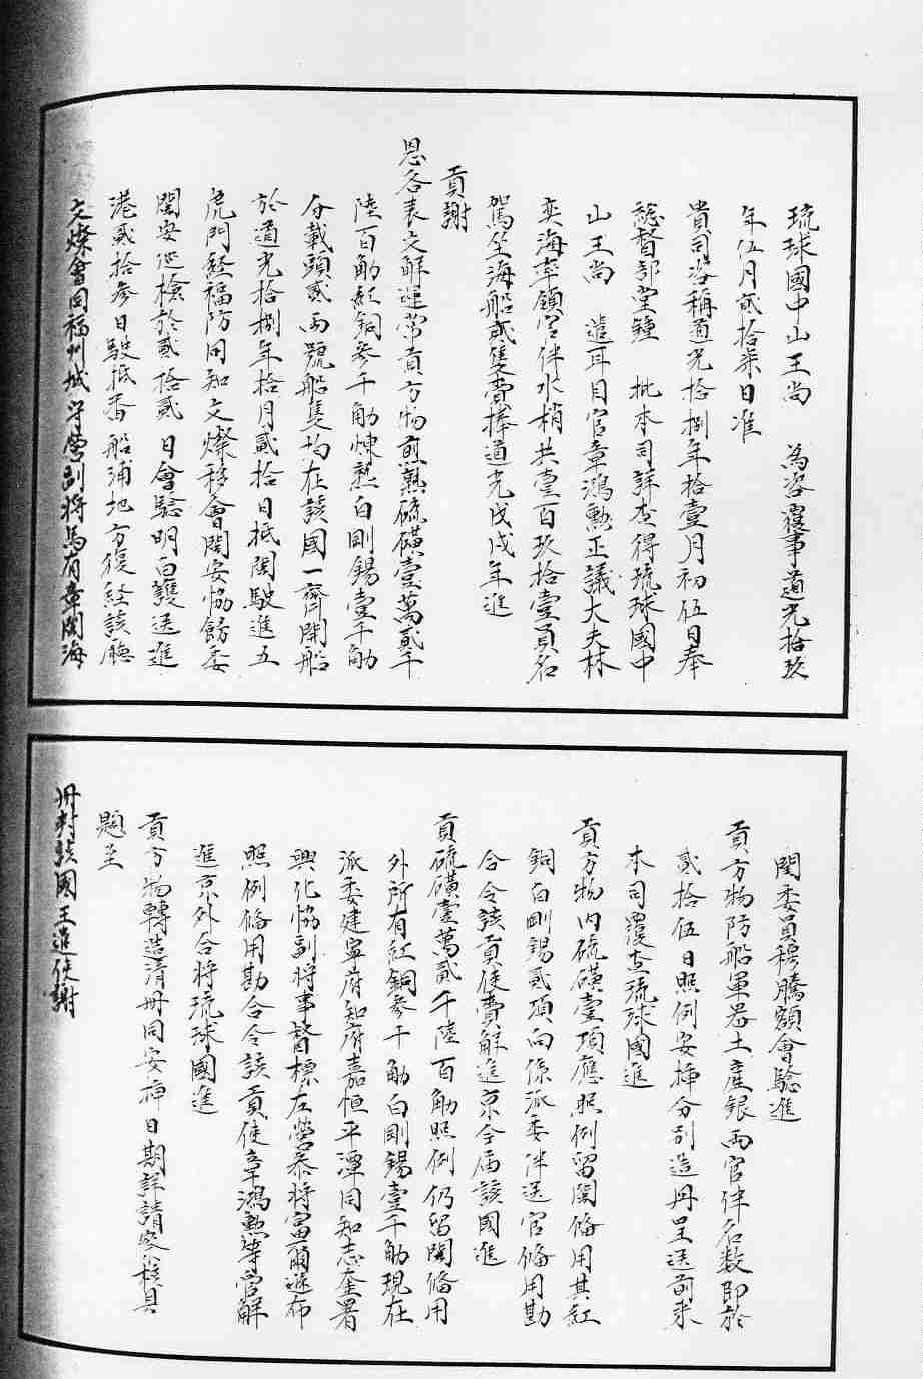 琉球國中山王尚　為咨覆事道光拾玖
年伍月貳拾柒日准
貴司咨稱道光拾捌年拾壹月初伍日奉
總督部堂鍾　批本司詳查得琉球國中
山王尚　遣耳目官章鴻勲正議大夫林
奕海率領官伴水梢共壹百玖拾壹員名
駕坐海船貳隻賫捧道光戊戌年進
貢謝
恩各表文解運常貢方物煎熟硫磺壹萬貳千
陸百觔紅銅參千觔煉熟白剛錫壹千觔
分載頭貳兩號船隻均在該國一齊開船
於道光拾捌年拾月貳拾日抵閩駛進五
虎門經福防同知文燦移會閩安協飭委
閩安巡檢於貳拾貳日會驗明白護送進
港貳拾參日駛抵番船浦地方復經該廳
文燦會同福州城守營副將馬有章閩海
閩委員穆騰額會驗進
貢方物防船軍器土產銀兩官伴名數即於
貳拾伍日照例安揷分別造冊呈送前來
本司覆查琉球國進
貢方物內硫磺壹項應照例留閩俻用其紅
銅白剛錫貳項向係派委伴送官俻用勘
合令該貢使賫解進京今届該國進
貢硫磺壹萬貳千陸百觔照例仍留閩俻用
外所有紅銅參千觔白剛錫壹千觔現在
派委建寧府知府嘉恒平潭同知志奎署
興化協副將事督標左營叅將富爾遜布
照例俻用勘合令該貢使章鴻勲等管解
進京外合將琉球國進
貢方物轉造清冊同安揷日期詳請察核具
題至
冊封該國王遣使謝